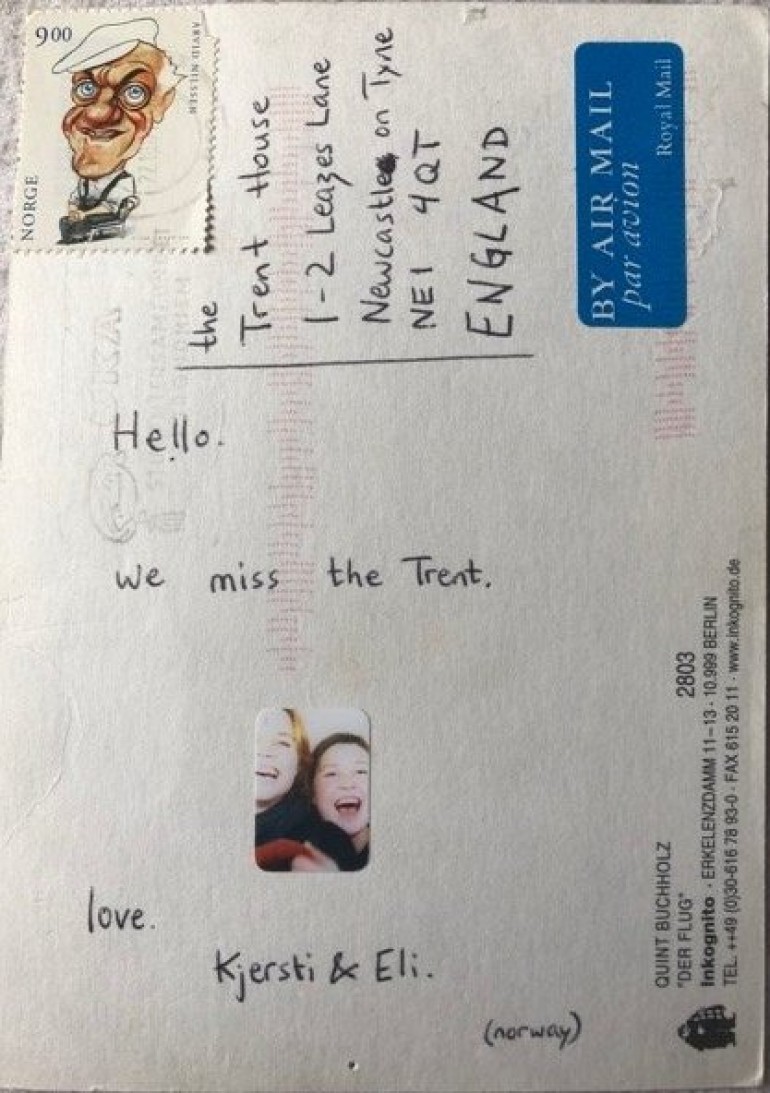 9 00
NORGE
ARVID NILSSEN
the
Trent House
1-2 Leazes Lane
Newcastle on Tyne
NE1 4QT
ENGLAND
BY AIR MAIL
par avion
Royal Mail
Hello.
we miss the Trent.
love.
Kjersti & Eli.
(norway)
QUINT BUCHHOLZ
"DER FLUG" 2803
Inkognito · ERKELENZDAMM 11–13 · 10.999 BERLIN
TEL. ++49 (0)30-616 78 93-0 · FAX 615 20 11 · www.inkognito.de